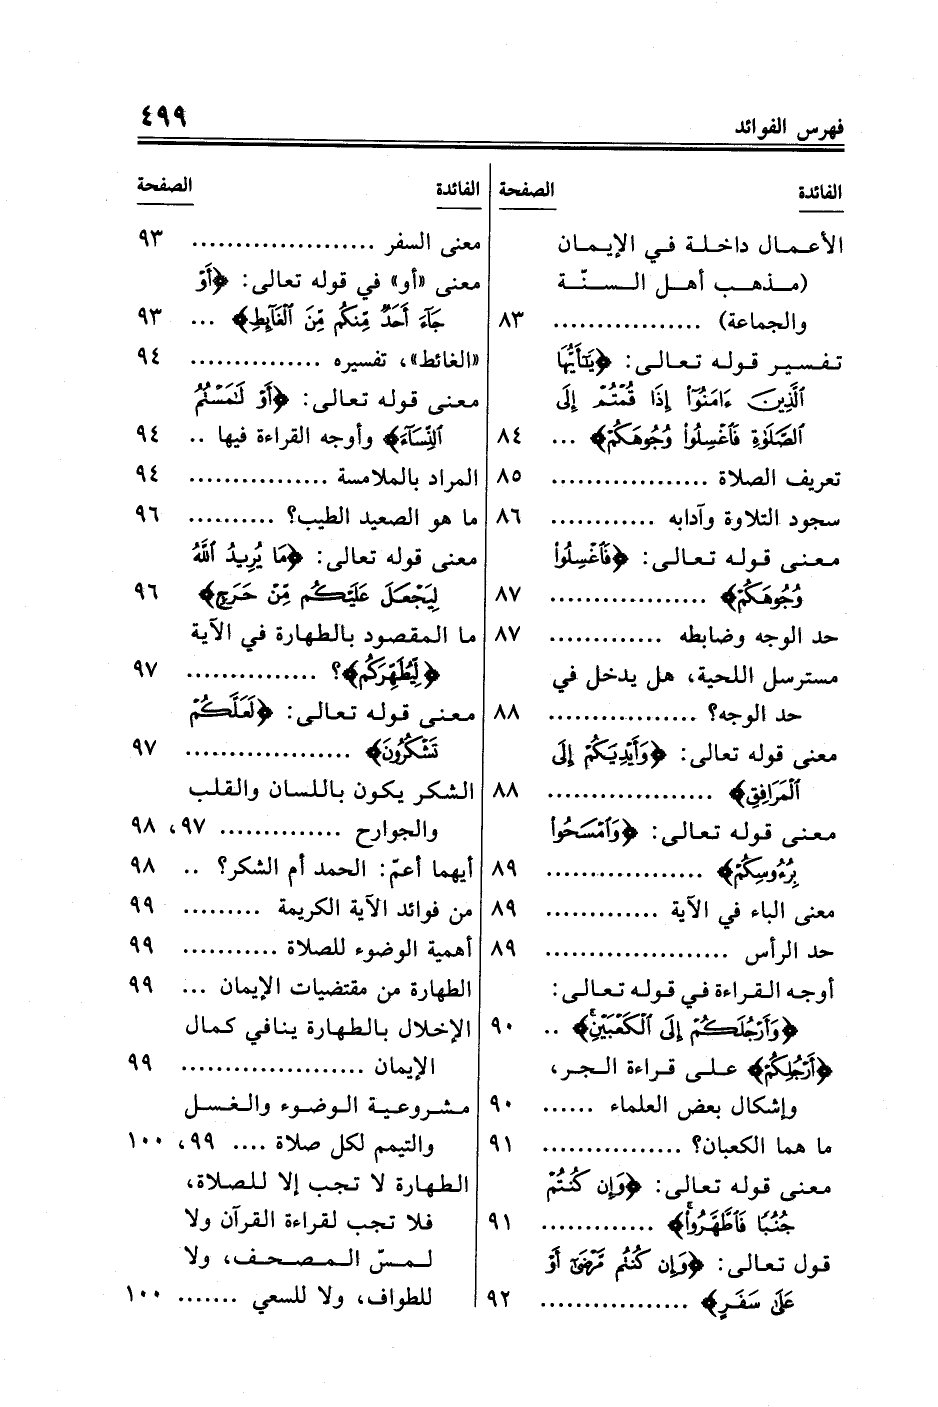 فهرس الفوائد ٤٩٩
الفائدة الصفحة
الأعمال داخلة في الإيمان
(مذهب أهل السنّة
والجماعة) ................. ٨٣
تفسير قوله تعالى: ﴿يَٰٓأَيُّهَا
ٱلَّذِينَ ءَامَنُوٓاْ إِذَا قُمۡتُمۡ إِلَى
ٱلصَّلَوٰةِ فَٱغۡسِلُواْ وُجُوهَكُمۡ﴾ ... ٨٤
تعريف الصلاة .................. ٨٥
سجود التلاوة وآدابه ............ ٨٦
معنى قوله تعالى: ﴿فَٱغۡسِلُواْ
وُجُوهَكُمۡ﴾ .................. ٨٧
حد الوجه وضابطه ............. ٨٧
مسترسل اللحية، هل يدخل في
حد الوجه؟ ................. ٨٨
معنى قوله تعالى: ﴿وَأَيۡدِيَكُمۡ إِلَى
ٱلۡمَرَافِقِ﴾ ................... ٨٨
معنى قوله تعالى: ﴿وَٱمۡسَحُواْ
بِرُءُوسِكُمۡ﴾ .................. ٨٩
معنى الباء في الآية ............. ٨٩
حد الرأس ..................... ٨٩
أوجه القراءة في قوله تعالى:
﴿وَأَرۡجُلَكُمۡ إِلَى ٱلۡكَعۡبَيۡنِۚ﴾ .. ٩٠
﴿أَرۡجُلِكُمۡ﴾ على قراءة الجر،
وإشكال بعض العلماء ...... ٩٠
ما هما الكعبان؟ ................ ٩١
معنى قوله تعالى: ﴿وَإِن كُنتُمۡ
جُنُبٗا فَٱطَّهَّرُواْۚ﴾ ............. ٩١
قول تعالى: ﴿وَإِن كُنتُم مَّرۡضَىٰٓ أَوۡ
عَلَىٰ سَفَرٍ﴾ ................. ٩٢
الفائدة الصفحة
معنى السفر ..................... ٩٣
معنى «أو» في قوله تعالى: ﴿أَوۡ
جَآءَ أَحَدٞ مِّنكُم مِّنَ ٱلۡغَآئِطِ﴾ ... ٩٣
«الغائط»، تفسيره ............... ٩٤
معنى قوله تعالى: ﴿أَوۡ لَٰمَسۡتُمُ
ٱلنِّسَآءَ﴾ وأوجه القراءة فيها .. ٩٤
المراد بالملامسة ................ ٩٤
ما هو الصعيد الطيب؟ .......... ٩٦
معنى قوله تعالى: ﴿مَا يُرِيدُ ٱللَّهُ
لِيَجۡعَلَ عَلَيۡكُم مِّنۡ حَرَجٖ﴾ ٩٦
ما المقصود بالطهارة في الآية
﴿لِيُطَهِّرَكُمۡ﴾؟ ............... ٩٧
معنى قوله تعالى: ﴿لَعَلَّكُمۡ
تَشۡكُرُونَ﴾ ................... ٩٧
الشكر يكون باللسان والقلب
والجوارح .............. ٩٧، ٩٨
أيهما أعمّ: الحمد أم الشكر؟ .. ٩٨
من فوائد الآية الكريمة ......... ٩٩
أهمية الوضوء للصلاة ........... ٩٩
الطهارة من مقتضيات الإيمان ... ٩٩
الإخلال بالطهارة ينافي كمال
الإيمان ..................... ٩٩
مشروعية الوضوء والغسل
والتيمم لكل صلاة .... ٩٩، ١٠٠
الطهارة لا تجب إلا للصلاة،
فلا تجب لقراءة القرآن ولا
لمسّ المصحف، ولا
للطواف، ولا للسعي ....... ١٠٠